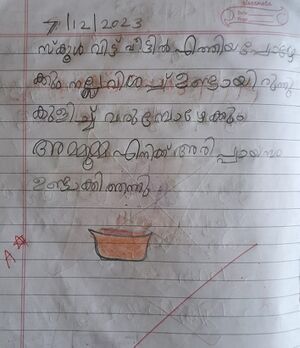 7/12/2023
സ്കൂൾ വിട്ട് വീട്ടിൽ എത്തിയപ്പോഴേ
ക്കും നല്ല വിശപ്പ് ഉണ്ടായിരുന്നു
കുളിച്ച് വരുമ്പോഴേക്കും
അമ്മുമ്മ എനിക്ക് അരി പ്പായസം
ഉണ്ടാക്കിത്തന്നു
A